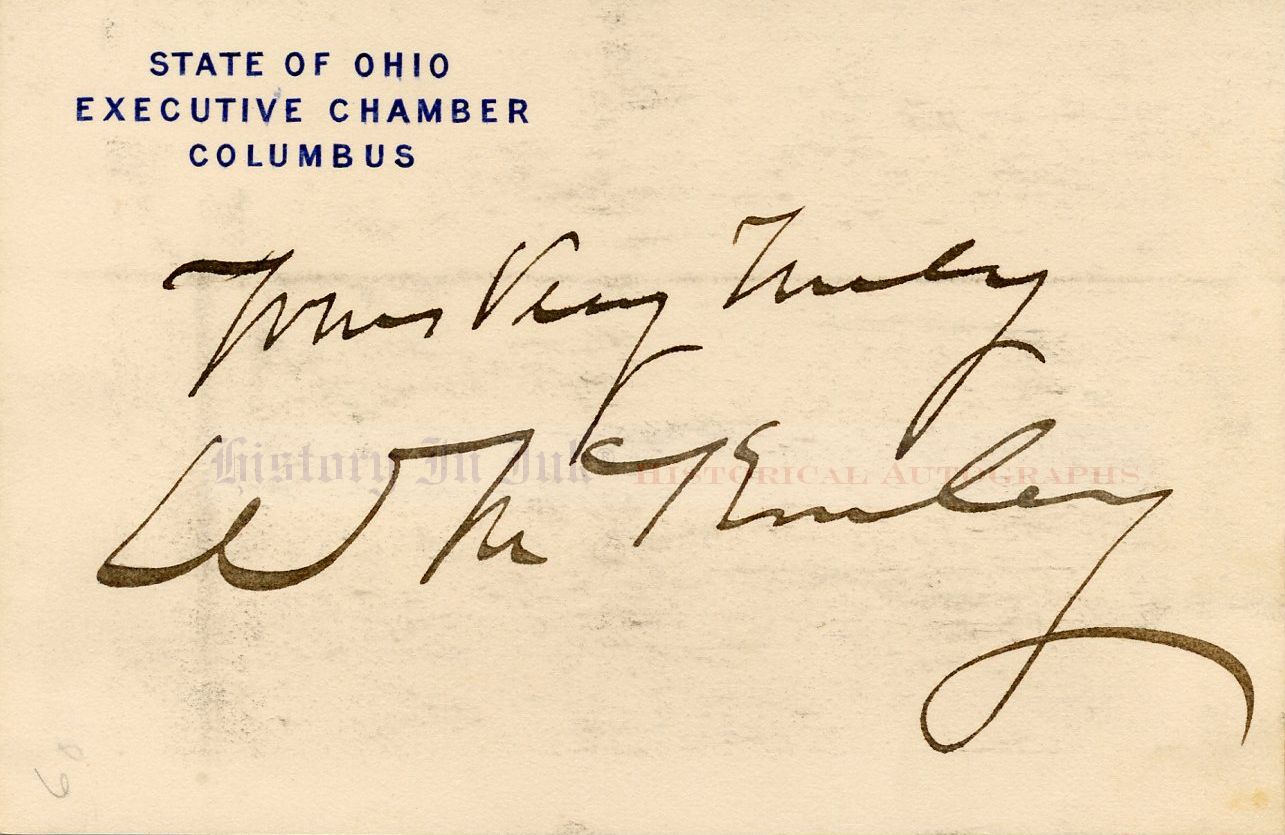 STATE OF OHIO
EXECUTIVE CHAMBER
COLUMBUS
Yours Very Truly
W McKinley
History In Ink HISTORICAL AUTOGRAPHS